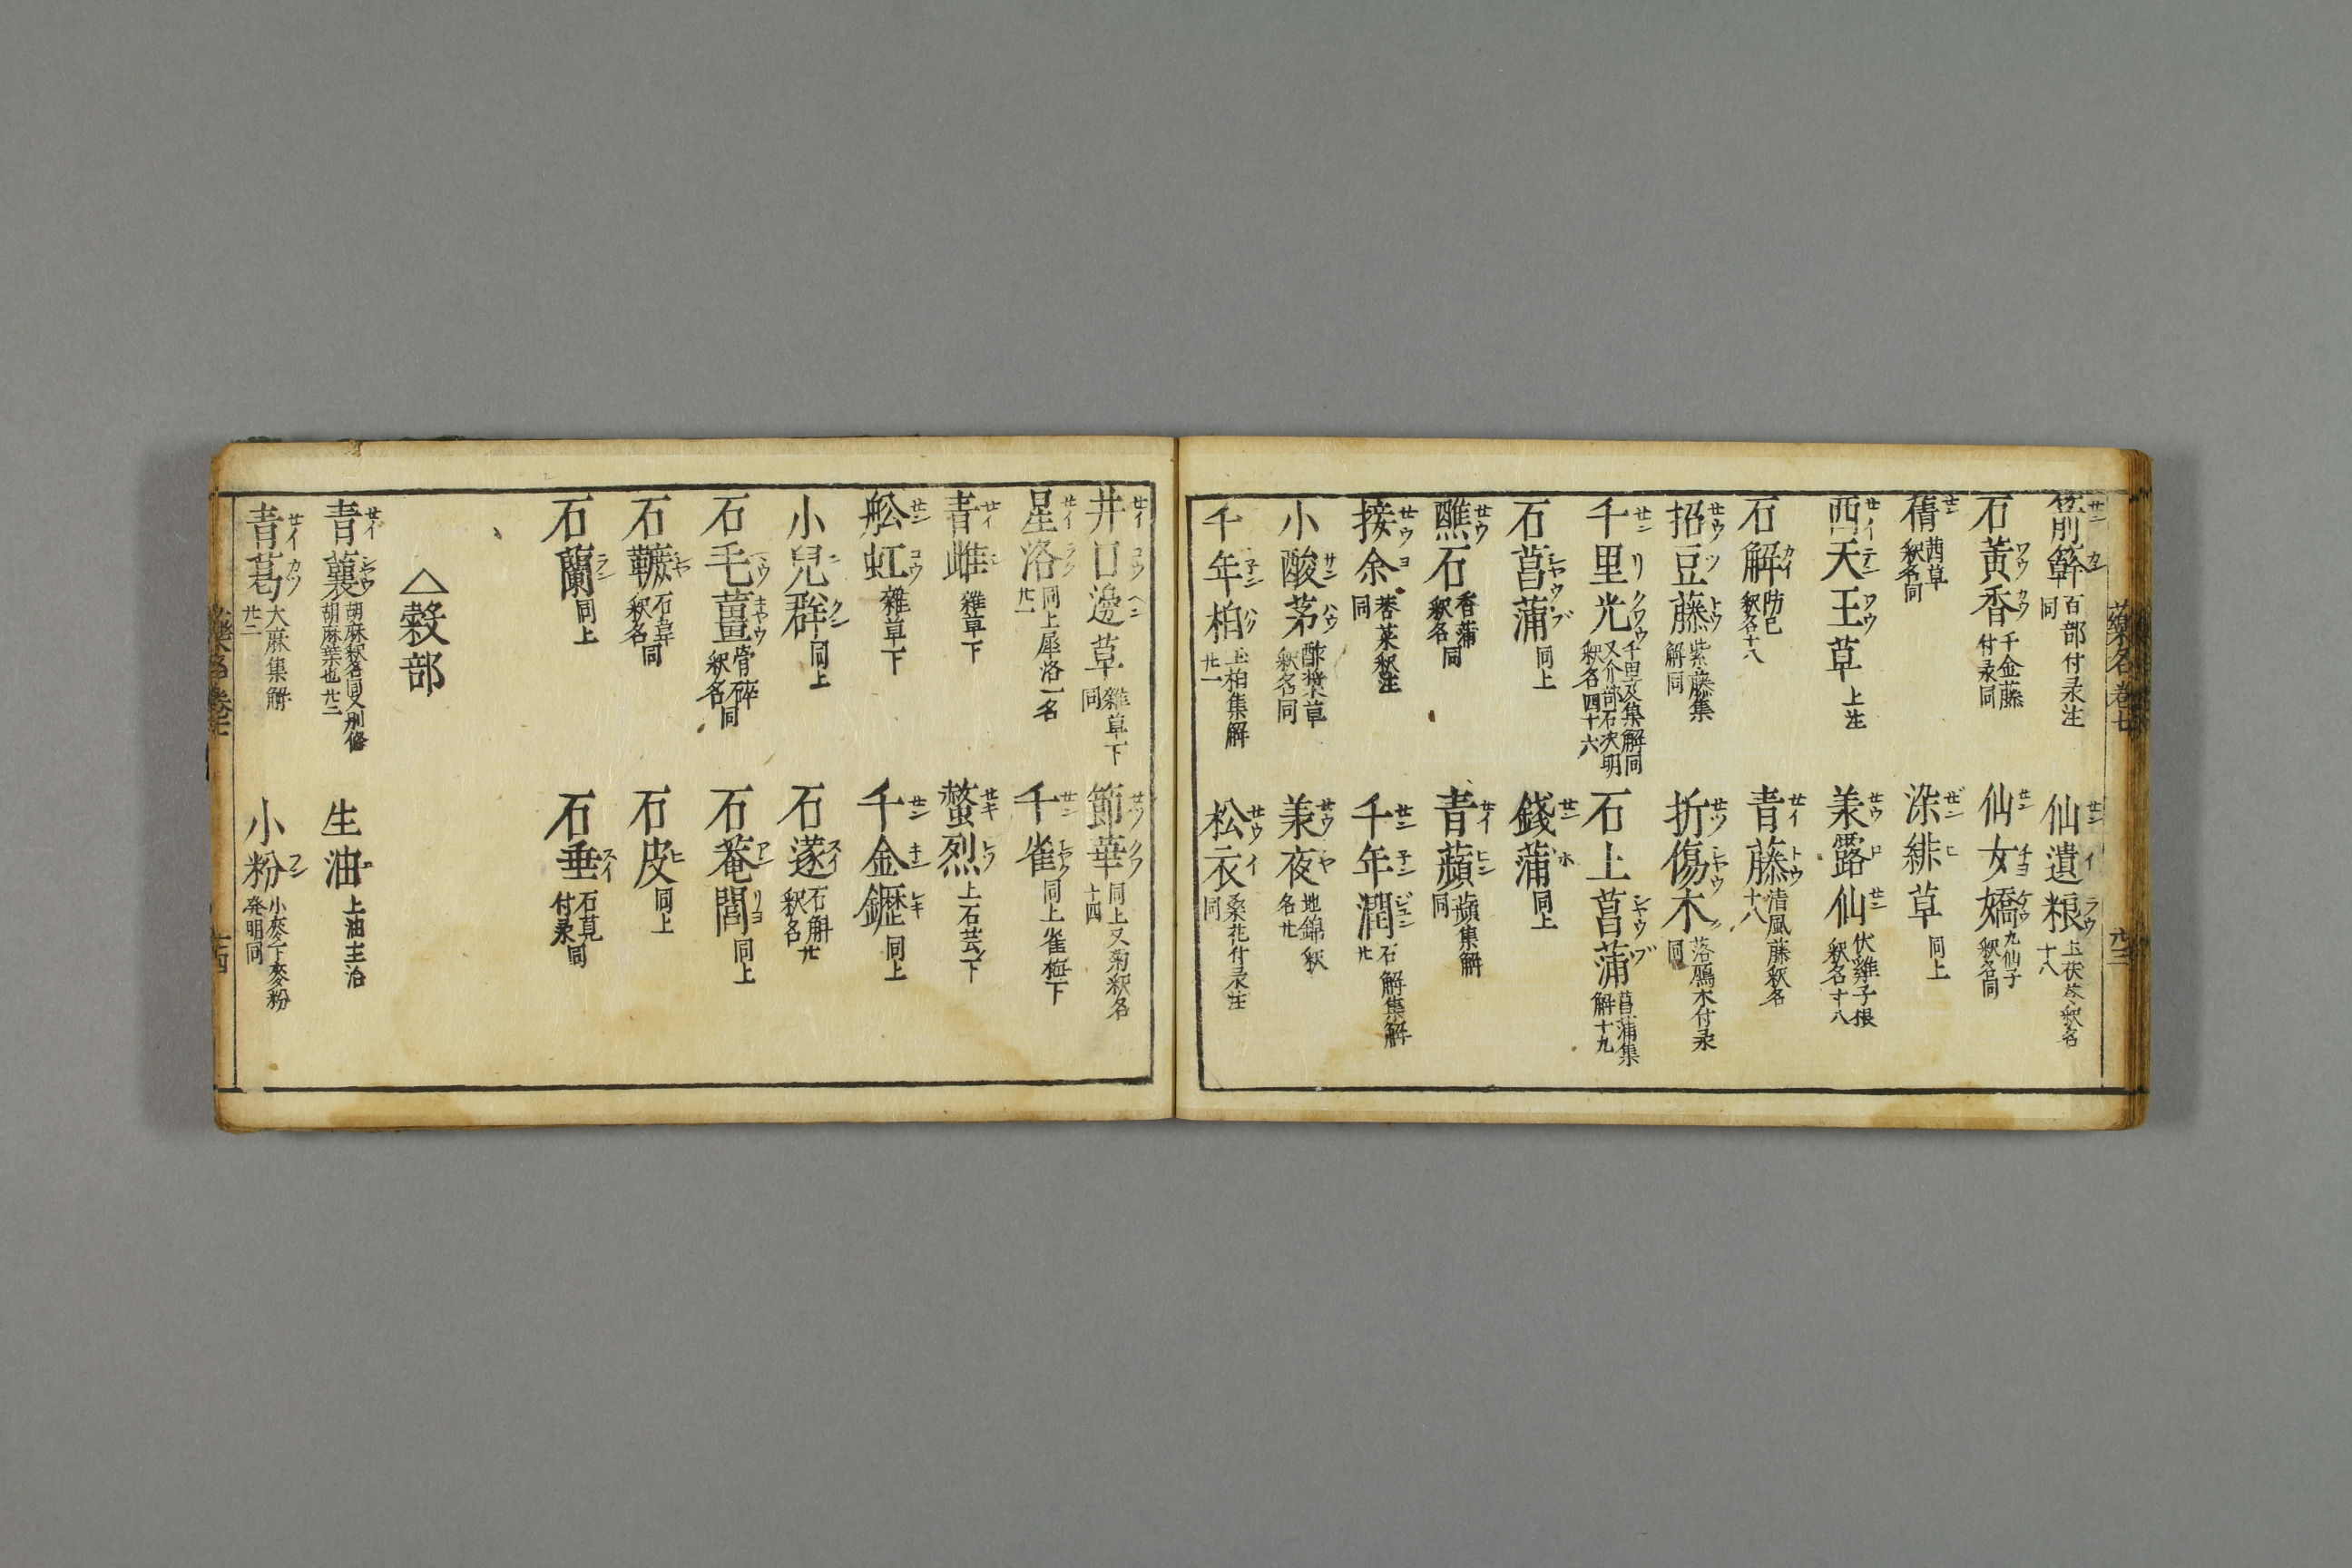 藥名卷七 廿三
箭簳 百部付录注 同
仙遺粮 土茯苓釈名 十八
石黃香 千金藤付录同
仙女嬌 九仙子釈名同
蒨 茜草釈名同
染緋草 同上
西天王草 上注
羕露仙 伏雞子根釈名十八
石解 防己釈名十八
青藤 清風藤釈名十八
招豆藤 紫藤集解同
折傷木 落鴈木付录同
千里光 千里及集解同又介部石決明釈名四十六
石上菖蒲 菖蒲集解十九
石菖蒲 同上
錢蒲 同上
醮石 香蒲釈名同
青蘋 蘋集解同
接余 莕菜釈注同
千年潤 石解集解廿
小酸茅 酢漿草釈名同
羕夜 地錦釈名廿
千年柏 玉柏集解廿一
松衣 桑花付录注同
井口邊草 雜草下同
節華 同上又菊釈名十四
星洛 同上犀洛一名廿一
千雀 同上雀梅下
青雌 雜草下
螫烈 上石芸下
舩虹 雜草下
千金鑩 同上
小兒群 同上
石蓫 石斛釈名廿
石毛薑 骨碎釈名同
石菴䕡 同上
石䩾 石韋釈名同
石皮 同上
石蘭 同上
石垂 石莧付录同
△穀部
青蘘 胡麻釈名同又別條胡麻葉也廿二
生油 上油主治
青葛 大麻集解廿二
小粉 小麥下麥粉発明同
藥名卷七 廿四